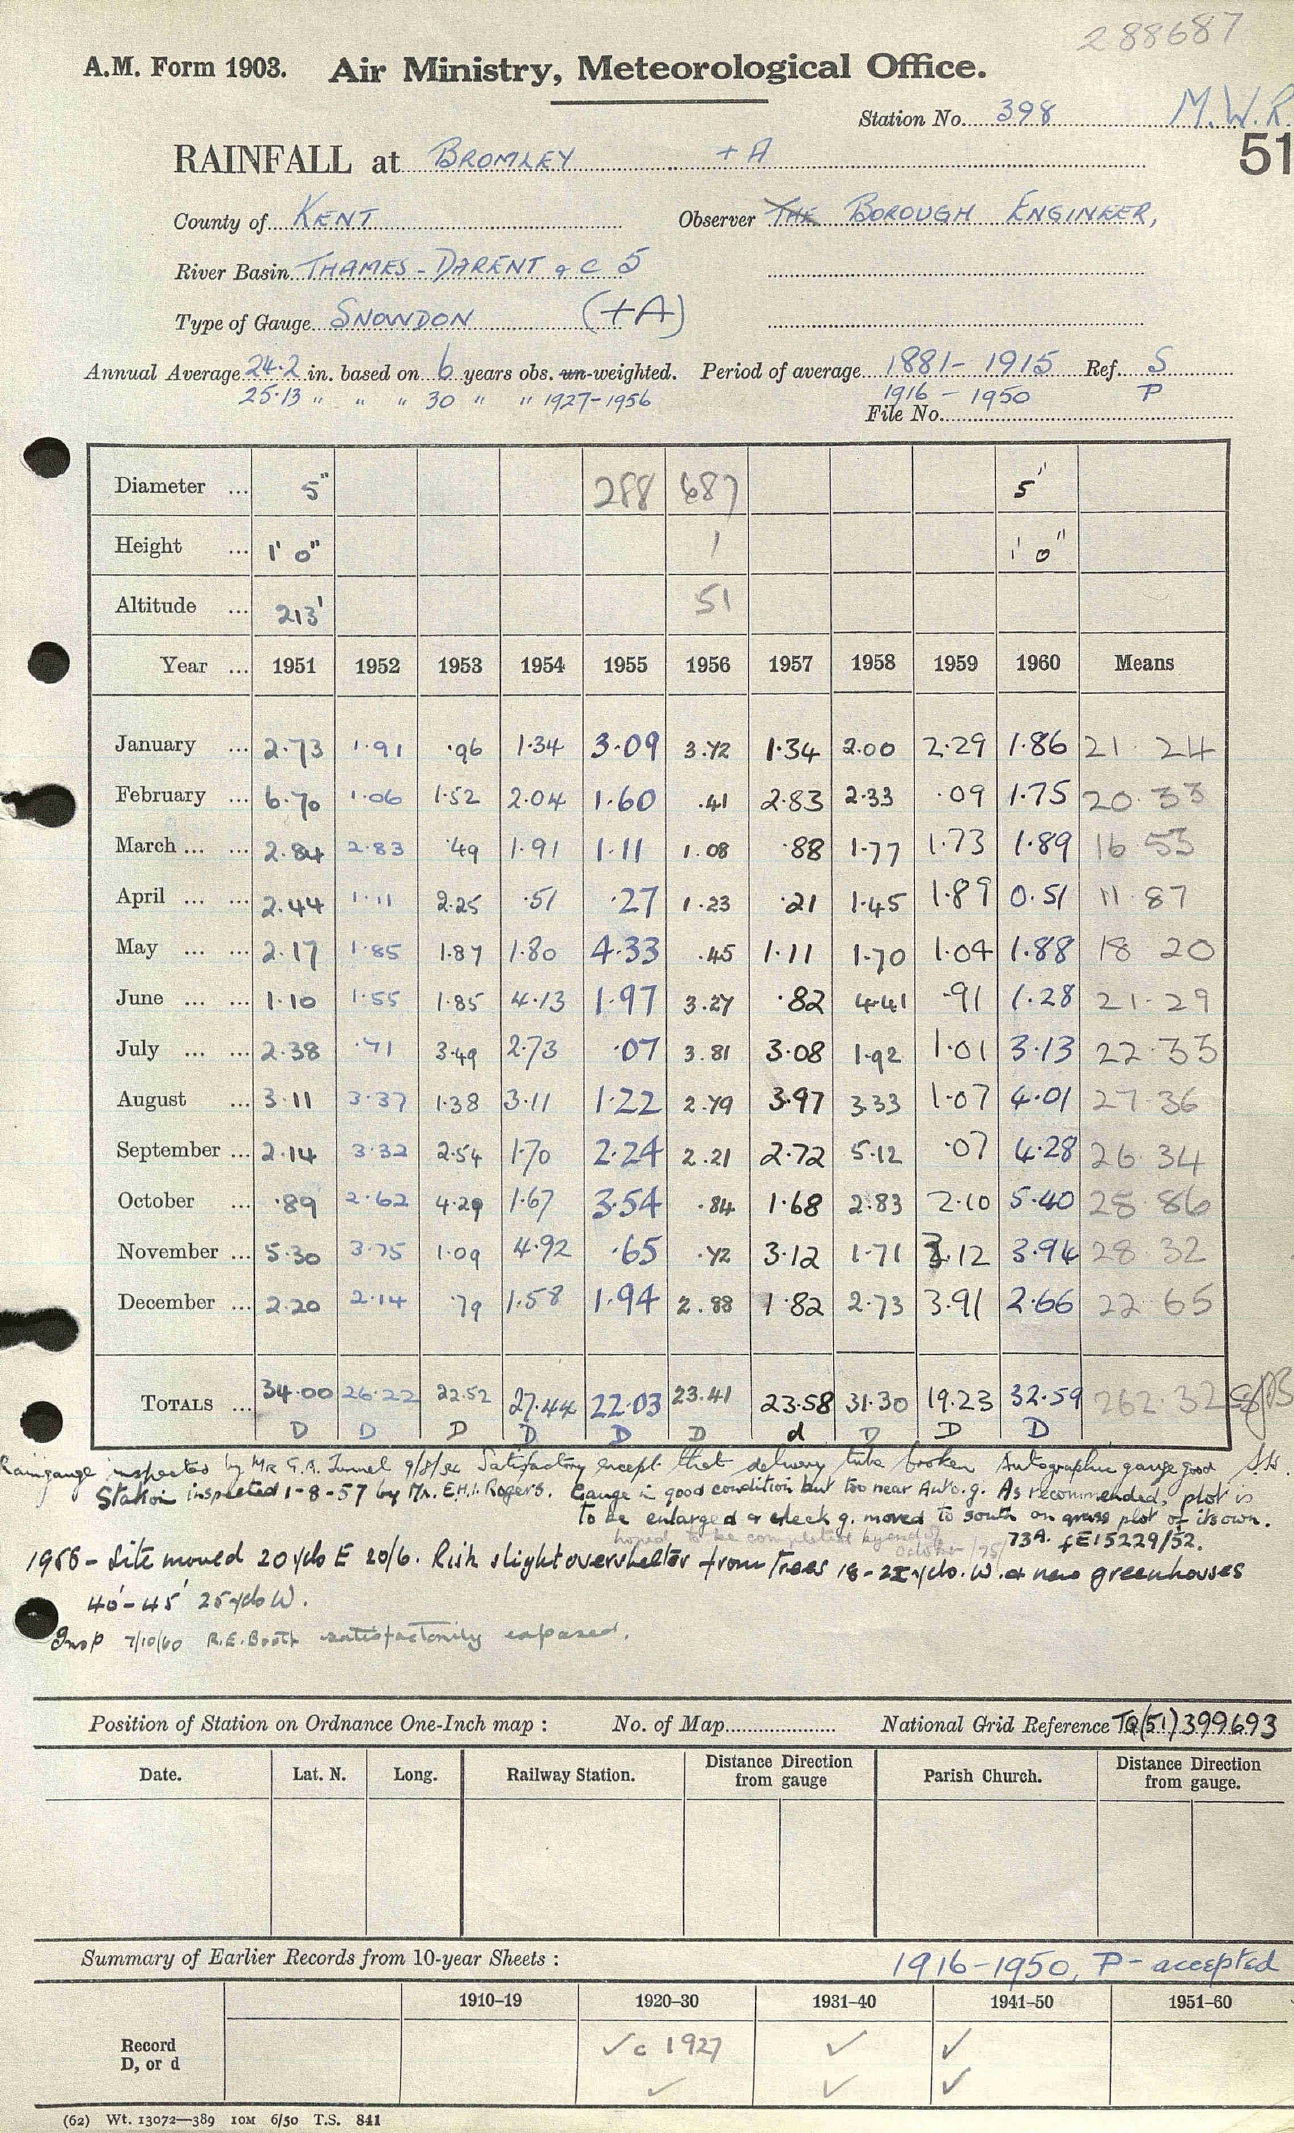 288687
A.M. Form 1903. Air Ministry, Meteorological Office.
Station No. 398 M.W.R.
51
RAINFALL at BROMLEY + A
County of KENT Observer THE BOROUGH ENGINEER,
River Basin THAMES - DARENT & C 5
Type of Gauge SNOWDON (+A)
Annual Average 24.2 in. based on 6 years obs. un-weighted. Period of average 1881 - 1915 Ref. S
25.13 " " " 30 " " 1927-1956 1916 - 1950 P
File No.
Diameter ... 5" 288 687 5"
Height ... 1' 0" 1 1' 0"
Altitude ... 213' 51
Year ... 1951 1952 1953 1954 1955 1956 1957 1958 1959 1960 Means
January ... 2.73 1.91 .96 1.34 3.09 3.72 1.34 2.00 2.29 1.86 21.24
February ... 6.70 1.06 1.52 2.04 1.60 .41 2.83 2.33 .09 1.75 20.33
March ... ... 2.84 2.83 .49 1.91 1.11 1.08 .88 1.77 1.73 1.89 16 53
April ... ... 2.44 1.11 2.25 .51 .27 1.23 .21 1.45 1.89 0.51 11.87
May ... ... 2.17 1.85 1.87 1.80 4.33 .45 1.11 1.70 1.04 1.88 18 20
June ... ... 1.10 1.55 1.85 4.13 1.97 3.27 .82 4.41 .91 1.28 21.29
July ... ... 2.38 .71 3.49 2.73 .07 3.81 3.08 1.92 1.01 3.13 22.33
August ... 3.11 3.37 1.38 3.11 1.22 2.79 3.97 3.33 1.07 4.01 27.36
September ... 2.14 3.32 2.54 1.70 2.24 2.21 2.72 5.12 .07 4.28 26.34
October ... .89 2.62 4.29 1.67 3.54 .84 1.68 2.83 2.10 5.40 25.86
November ... 5.30 3.75 1.09 4.92 .65 .72 3.12 1.71 3.12 3.94 28.32
December ... 2.20 2.14 .79 1.58 1.94 2.88 1.82 2.73 3.91 2.66 22 65
TOTALS ... 34.00 26.22 22.52 27.44 22.03 23.41 23.58 31.30 19.23 32.59 262.32
D D D D D D d D D D
Raingauge inspected by Mr G.A. Tunnel 9/8/54 Satisfactory except that delivery tube broken Autographic gauge good
Station inspected 1-8-57 by Mr. E.H.I. Rogers. Gauge in good condition but too near Auto. g. As recommended, plot is
to be enlarged & check g. moved to south on grass plot of its own.
hoped to be completed by end of October 73A. fE15229/52.
1958 - Site moved 20 yds E 20/6. Risk slight overshelter from trees 18-22 yds. W. & new greenhouses
40'-45' 25 yds W.
Insp 7/10/60 R.E. Booth satisfactorily exposed.
Position of Station on Ordnance One-Inch map : No. of Map National Grid Reference TQ(51)399693
Date. Lat. N. Long. Railway Station. Distance Direction from gauge Parish Church. Distance Direction from gauge.
Summary of Earlier Records from 10-year Sheets : 1916-1950, P - accepted
1910–19 1920–30 1931–40 1941–50 1951–60
Record ✓ c 1927 ✓ ✓
D, or d ✓ ✓ ✓
(62) Wt. 13072—389 10M 6/50 T.S. 841